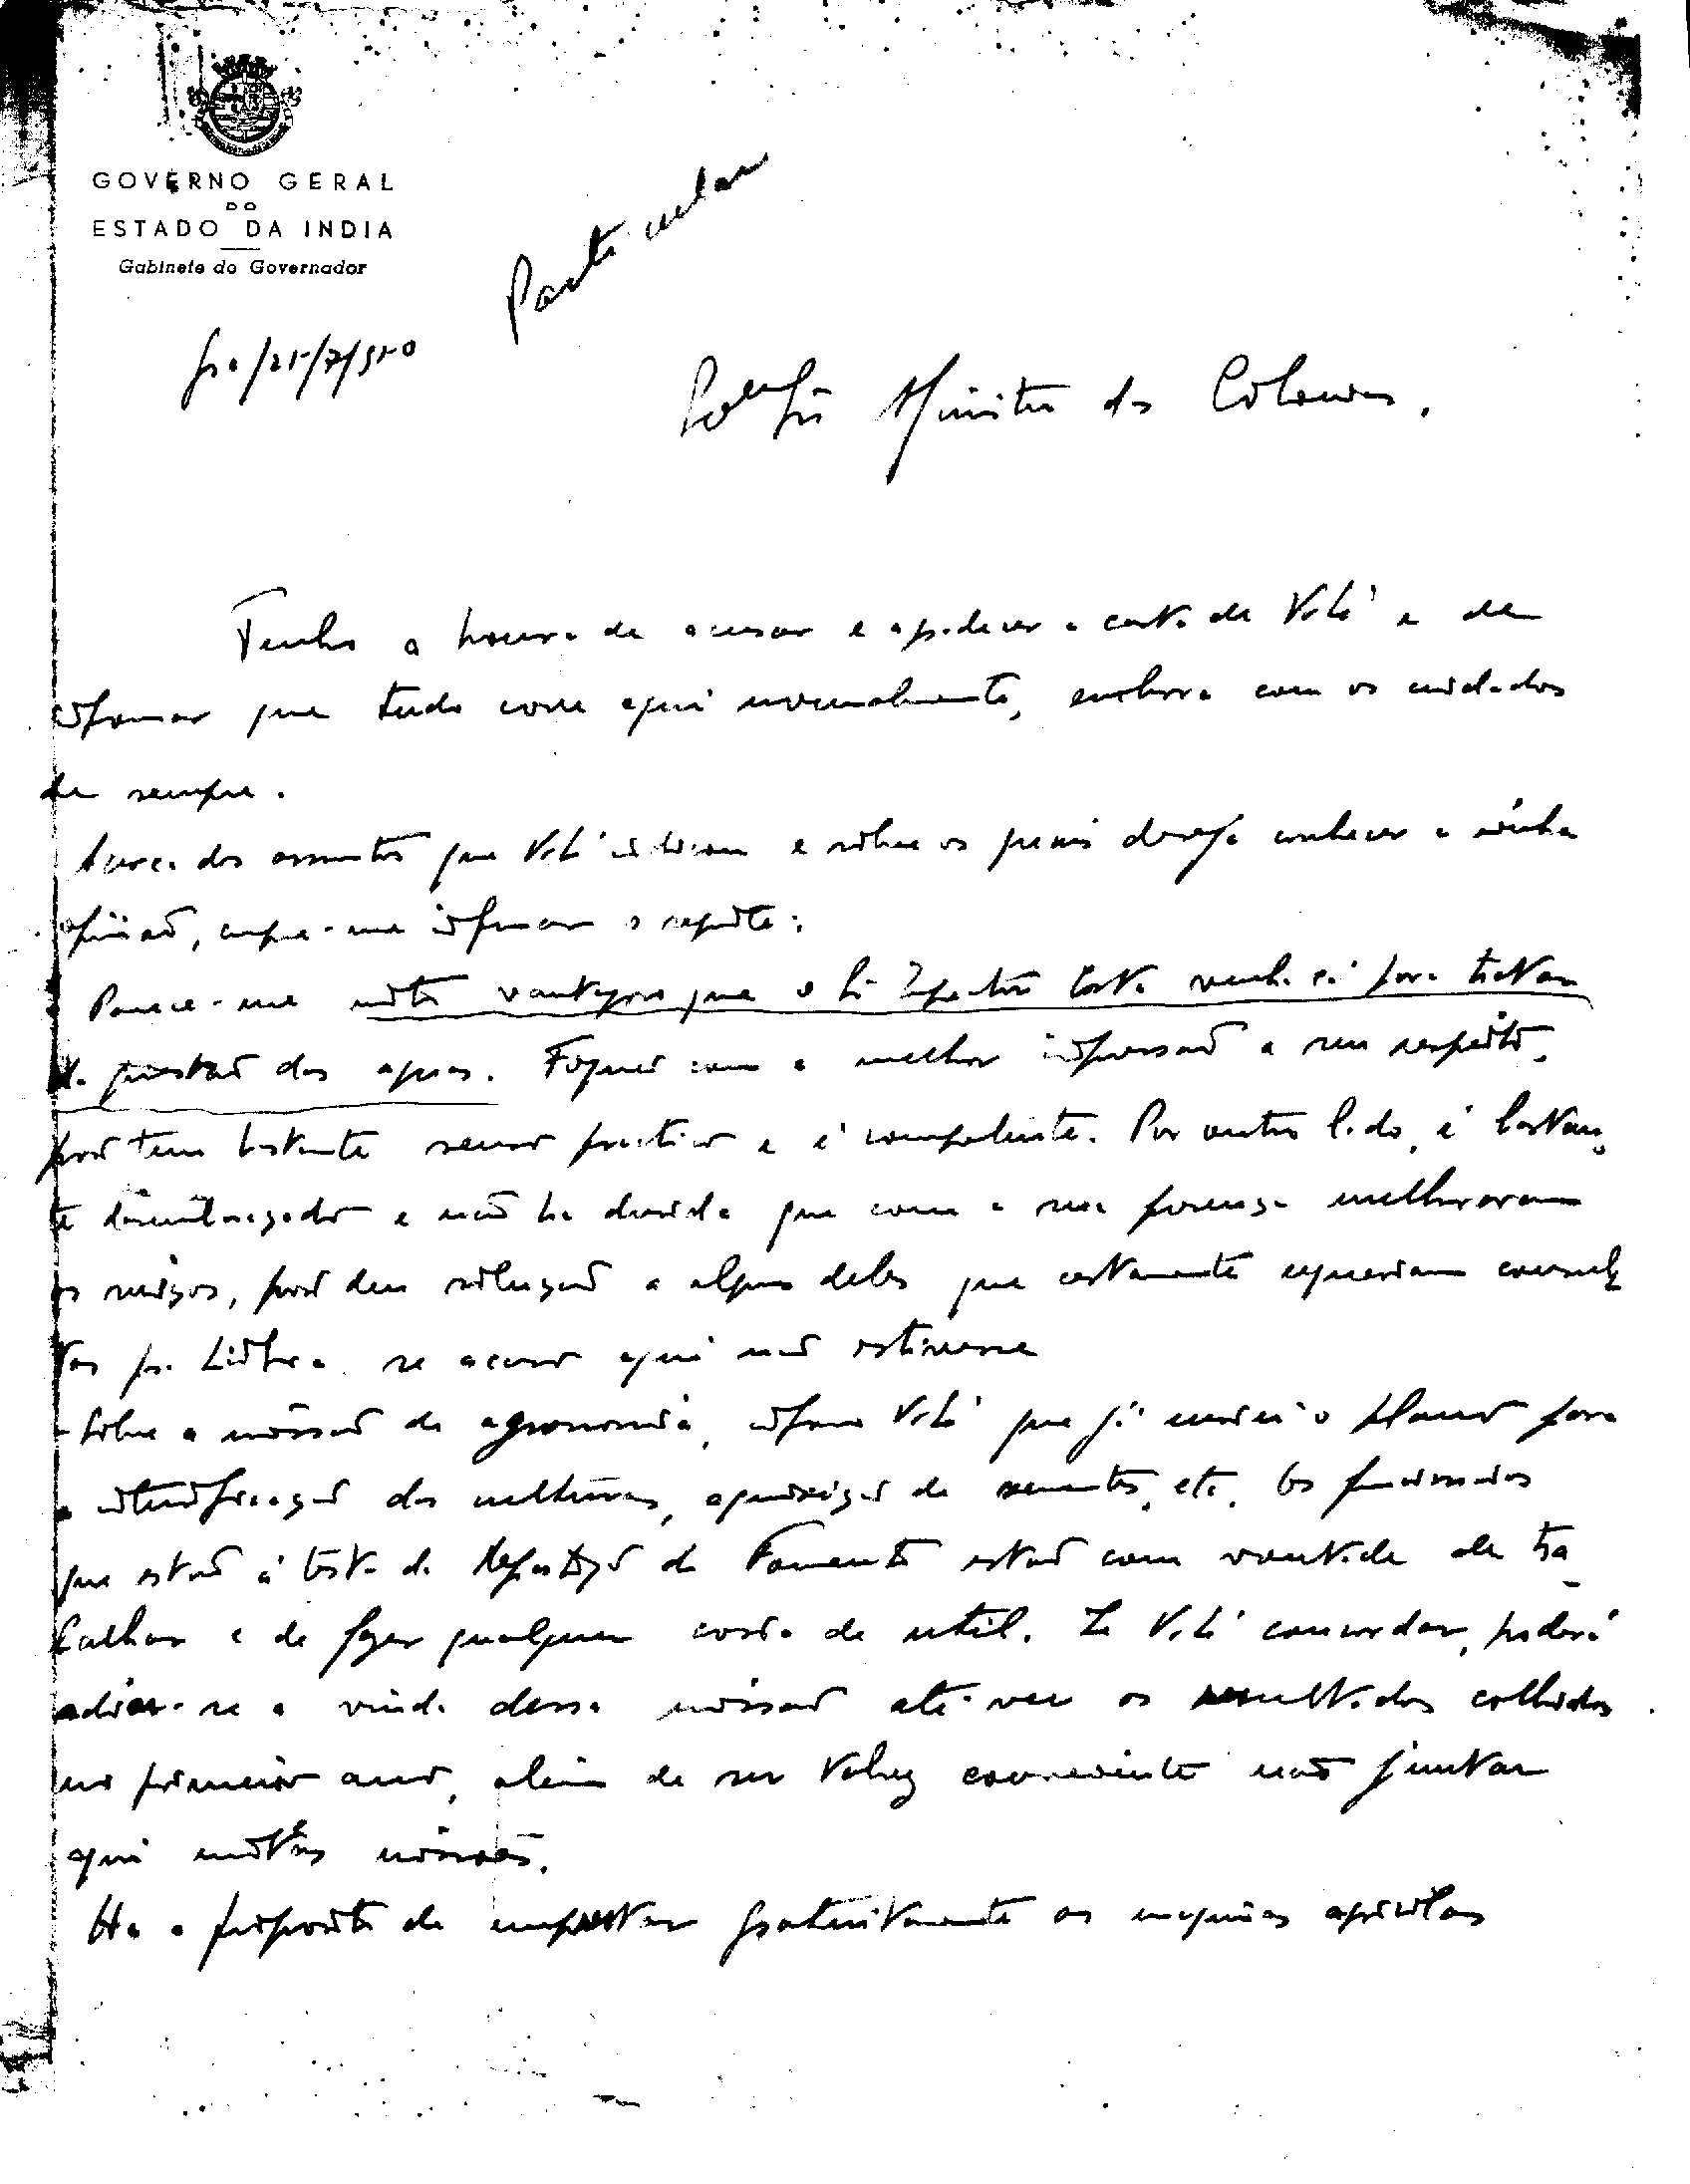 GOVERNO GERAL
DO
ESTADO DA INDIA
Gabinete do Governador
Particular
Goa/25/7/950
Ministro das Colonias.
Tenho a honra de acusar e agradecer a carta de V. Exª e de
informar que tudo corre aqui normalmente, embora com os cuidados
de sempre.
Acerca dos assuntos que V. Exª e sobre os quais deseja conhecer a minha
opinião, cumpre-me informar o seguinte:
Parece-me muito que o Sr Inspector Costa venha cá para tratar
da questão das aguas. Fiquei com a melhor impressão a seu respeito,
pois tem bastante senso pratico e é competente. Por outro lado, é bastan-
te desembaraçado e não ha duvida que com a sua presença melhoraram
os serviços, pois deu solução a alguns deles que certamente requeriam consul-
tas pa Lisboa se acaso aqui não estivesse
- Sobre a missão de agronomia, informo V. Exª que já enviei o plano para
a intensificação das culturas, aquisição de sementes, etc. Os funcionarios
que estão á testa da Repartição do Fomento estão com vontade de tra-
balhar e de fazer qualquer coisa de util. Se V. Exª concordar, poderá
adiar-se a vinda dessa missão até ver os resultados colhidos
no primeiro ano, alem de ser talvez conveniente não juntar
aqui muitas missões.
Ha o proposito de emprestar gratuitamente as maquinas agricolas